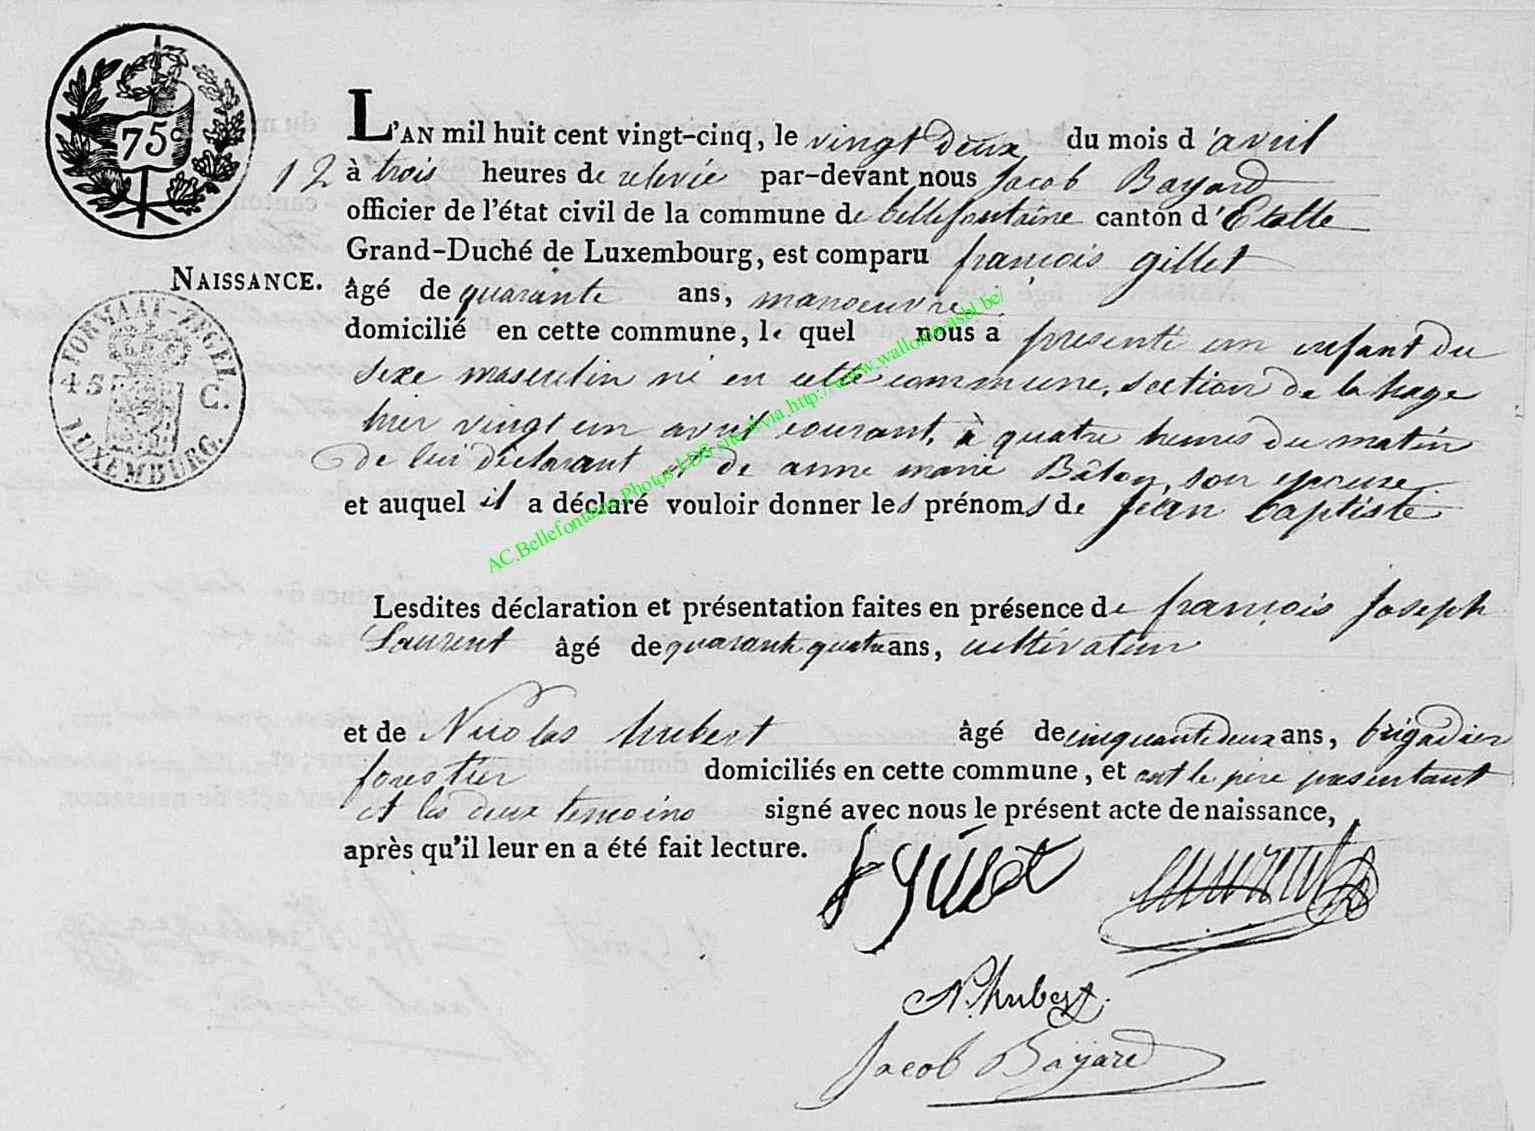 75c
L'AN mil huit cent vingt-cinq, le vingt deux du mois d'avril
12 à trois heures de relevée par-devant nous Jacob Bayard
officier de l'état civil de la commune de bellefontaine canton d'Etalle
Grand-Duché de Luxembourg, est comparu françois gillet
NAISSANCE.
âgé de quarante ans, manoeuvre
domicilié en cette commune, le quel nous a presenté un enfant du
sexe masculin né en cette commune, section de la hage
hier vingt un avril courant, à quatre heures du matin
de lui déclarant et de anne marie Bâlon, son epouse
et auquel il a déclaré vouloir donner les prénoms de jean baptiste
FORMAAT-ZEGEL
45 C.
LUXEMBURG.
AC.Bellefontaine Photos LDS via http://www.wallonia.asbl.be/
Lesdites déclaration et présentation faites en présence de françois Joseph
Laurent âgé de quarante quatre ans, cultivateur
et de Nicolas hubert âgé de cinquante deux ans, brigadier
forestier domiciliés en cette commune, et ont le père présentant
et les deux temoins signé avec nous le présent acte de naissance,
après qu'il leur en a été fait lecture.
f gillet Laurent
N. hubert
Jacob Bayard